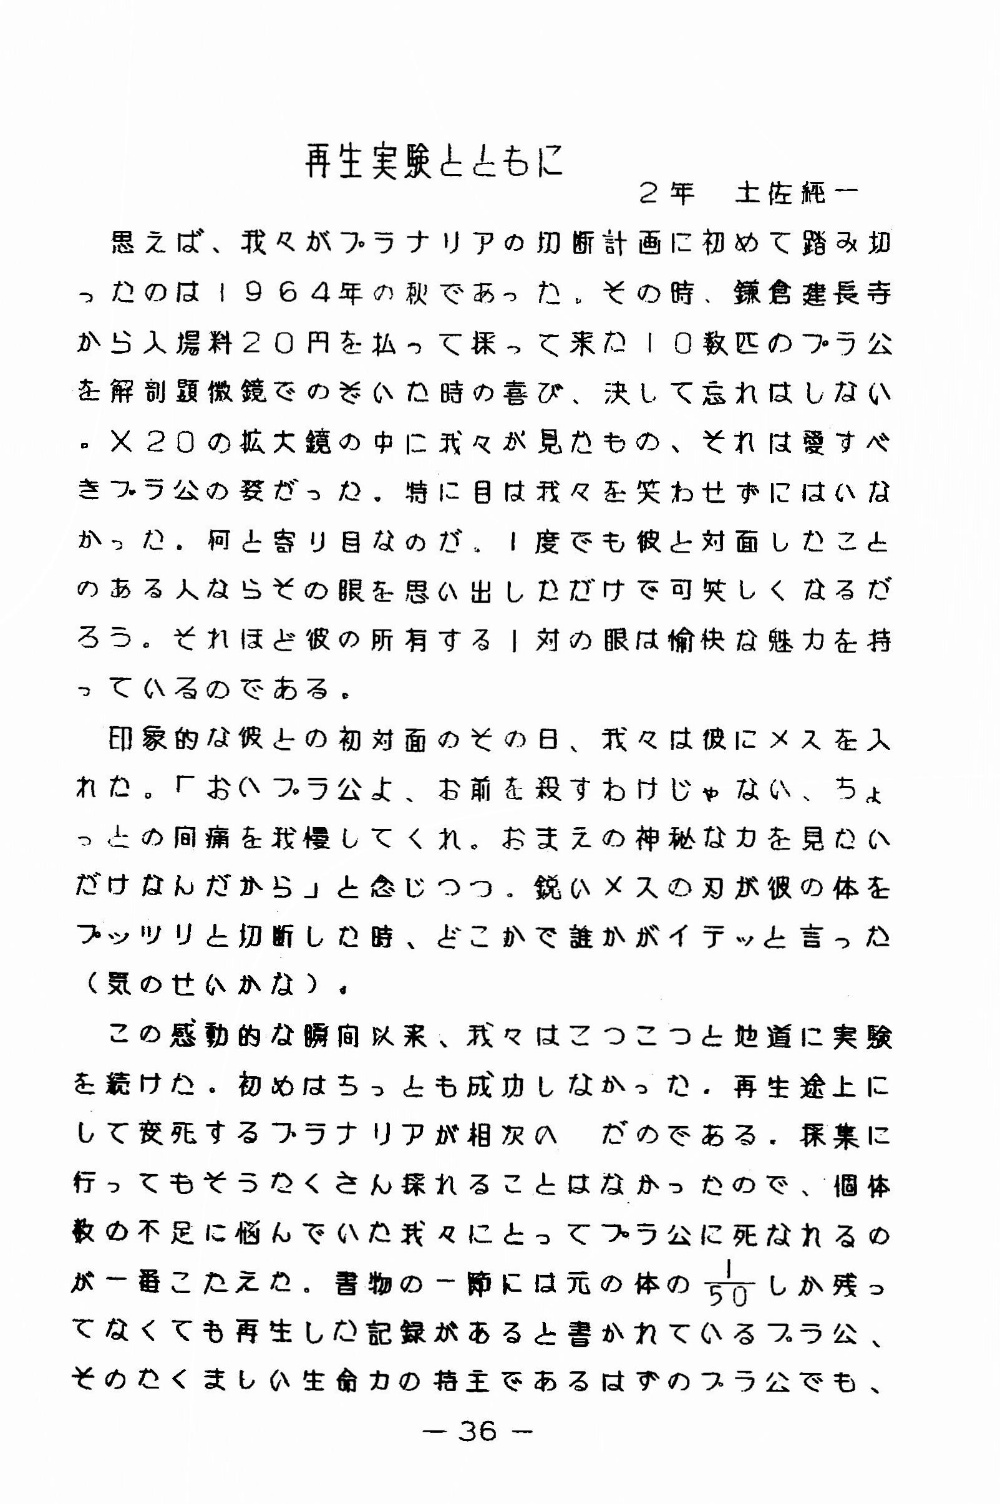 再生実験とともに
2年　土佐純一
思えば、我々がプラナリアの切断計画に初めて踏み切
ったのは1964年の秋であった。その時、鎌倉建長寺
から入場料20円を払って採って来た10数匹のプラ公
を解剖顕微鏡でのぞいた時の喜び、決して忘れはしない
。×20の拡大鏡の中に我々が見たもの、それは愛すべ
きプラ公の姿だった。特に目は我々を笑わせずにはいな
かった。何と寄り目なのだ。1度でも彼と対面したこと
のある人ならその眼を思い出しただけで可笑しくなるだ
ろう。それほど彼の所有する1対の眼は愉快な魅力を持
っているのである。
印象的な彼との初対面のその日、我々は彼にメスを入
れた。「おいプラ公よ、お前を殺すわけじゃない、ちょ
っとの間痛を我慢してくれ。おまえの神秘な力を見たい
だけなんだから」と念じつつ。鋭いメスの刃が彼の体を
プッツリと切断した時、どこかで誰かがイテッと言った
（気のせいかな）。
この感動的な瞬間以来、我々はこつこつと地道に実験
を続けた。初めはちっとも成功しなかった。再生途上に
して変死するプラナリアが相次の　だのである。採集に
行ってもそうたくさん採れることはなかったので、個体
数の不足に悩んでいた我々にとってプラ公に死なれるの
が一番こたえた。書物の一節には元の体の1/50しか残っ
てなくても再生した記録があると書かれているプラ公、
そのたくましい生命力の持主であるはずのプラ公でも、
— 36 —